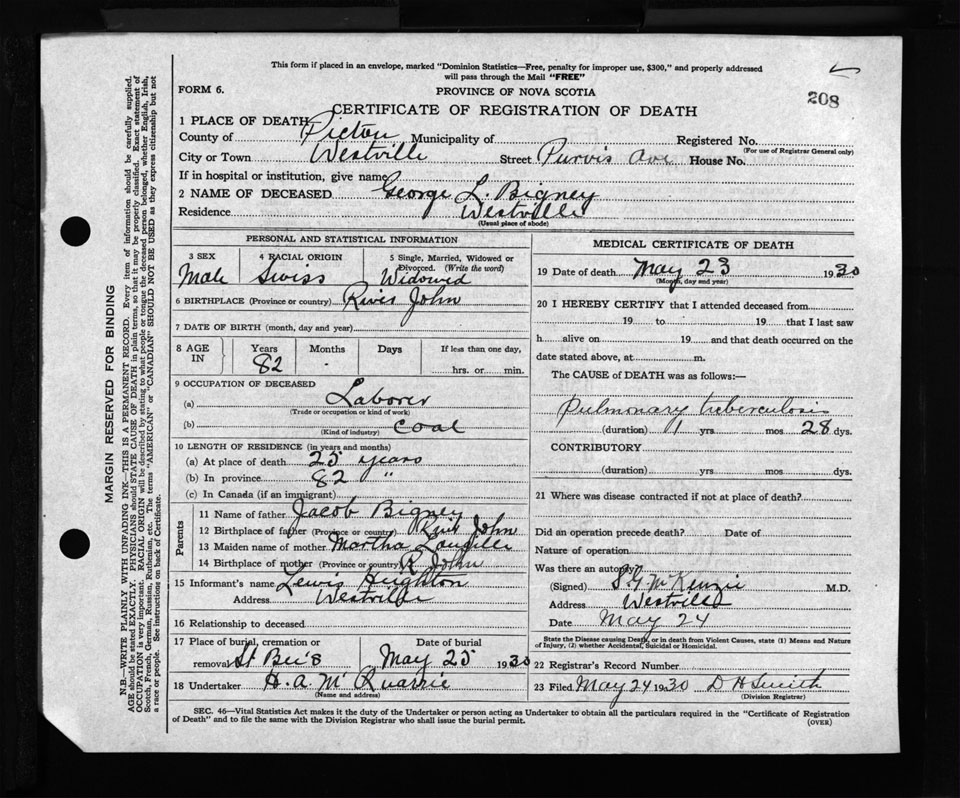 This form if placed in an envelope, marked "Dominion Statistics—Free, penalty for improper use, $300," and properly addressed
will pass through the Mail "FREE"
208
FORM 6.
PROVINCE OF NOVA SCOTIA
CERTIFICATE OF REGISTRATION OF DEATH
1 PLACE OF DEATH
County of Pictou Municipality of Registered No.
(For use of Registrar General only)
City or Town Westville Street Purvis Ave House No.
If in hospital or institution, give name
2 NAME OF DECEASED George L. Bigney
Residence Westville
(Usual place of abode)
PERSONAL AND STATISTICAL INFORMATION
3 SEX 4 RACIAL ORIGIN 5 Single, Married, Widowed or Divorced. (Write the word)
Male Swiss Widowed
6 BIRTHPLACE (Province or country) River John
7 DATE OF BIRTH (month, day and year)
8 AGE IN Years Months Days If less than one day,
82 - hrs. or min.
9 OCCUPATION OF DECEASED
(a) Laborer
(Trade or occupation or kind of work)
(b) Coal
(Kind of industry)
10 LENGTH OF RESIDENCE (in years and months)
(a) At place of death 25 years
(b) In province 82 "
(c) In Canada (if an immigrant)
Parents
11 Name of father Jacob Bigney
12 Birthplace of father (Province or country) River John
13 Maiden name of mother Martha
14 Birthplace of mother (Province or country) R John
15 Informant's name Lewis Heighton
Address Westville
16 Relationship to deceased
17 Place of burial, cremation or Date of burial
removal St Bee's May 25 1930
18 Undertaker H. A. McQuarrie
(Name and address)
MEDICAL CERTIFICATE OF DEATH
19 Date of death May 23 1930
(Month, day and year)
20 I HEREBY CERTIFY that I attended deceased from
19 to 19 that I last saw
h alive on 19 and that death occurred on the
date stated above, at m.
The CAUSE of DEATH was as follows:—
Pulmonary tuberculosis
(duration) 1 yrs mos 28 dys.
CONTRIBUTORY
(duration) yrs. mos. dys.
21 Where was disease contracted if not at place of death?
Did an operation precede death? Date of
Nature of operation
Was there an autopsy?
(Signed) S. G. McKenzie M.D.
Address Westville
Date May 24
State the Disease causing Death, or in death from Violent Causes, state (1) Means and Nature
of Injury, (2) whether Accidental, Suicidal or Homicidal.
22 Registrar's Record Number
23 Filed May 24 1930 D H Smith
(Division Registrar)
SEC. 46—Vital Statistics Act makes it the duty of the Undertaker or person acting as Undertaker to obtain all the particulars required in the "Certificate of Registration
of Death" and to file the same with the Division Registrar who shall issue the burial permit.
(OVER)
MARGIN RESERVED FOR BINDING
N.B.—WRITE PLAINLY WITH UNFADING INK—THIS IS A PERMANENT RECORD. Every item of information should be carefully supplied.
AGE should be stated EXACTLY. PHYSICIANS should STATE CAUSE OF DEATH in plain terms, so that it may be properly classified. Exact statement of
OCCUPATION is very important. RACIAL ORIGIN will be described by stating to what people or tongue the deceased person belonged, whether English, Irish,
Scotch, French, German, Russian, Ruthenian, etc. The terms "AMERICAN" or "CANADIAN" SHOULD NOT BE USED as they express citizenship but not
a race or people. See instructions on back of Certificate.